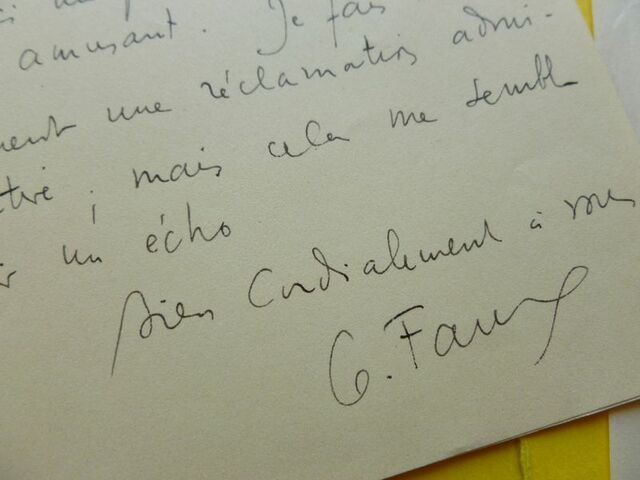 amusant. Je fais
ment une réclamation admi-
tive ; mais cela me semble
un écho
Bien Cordialement à vous
G. Faur